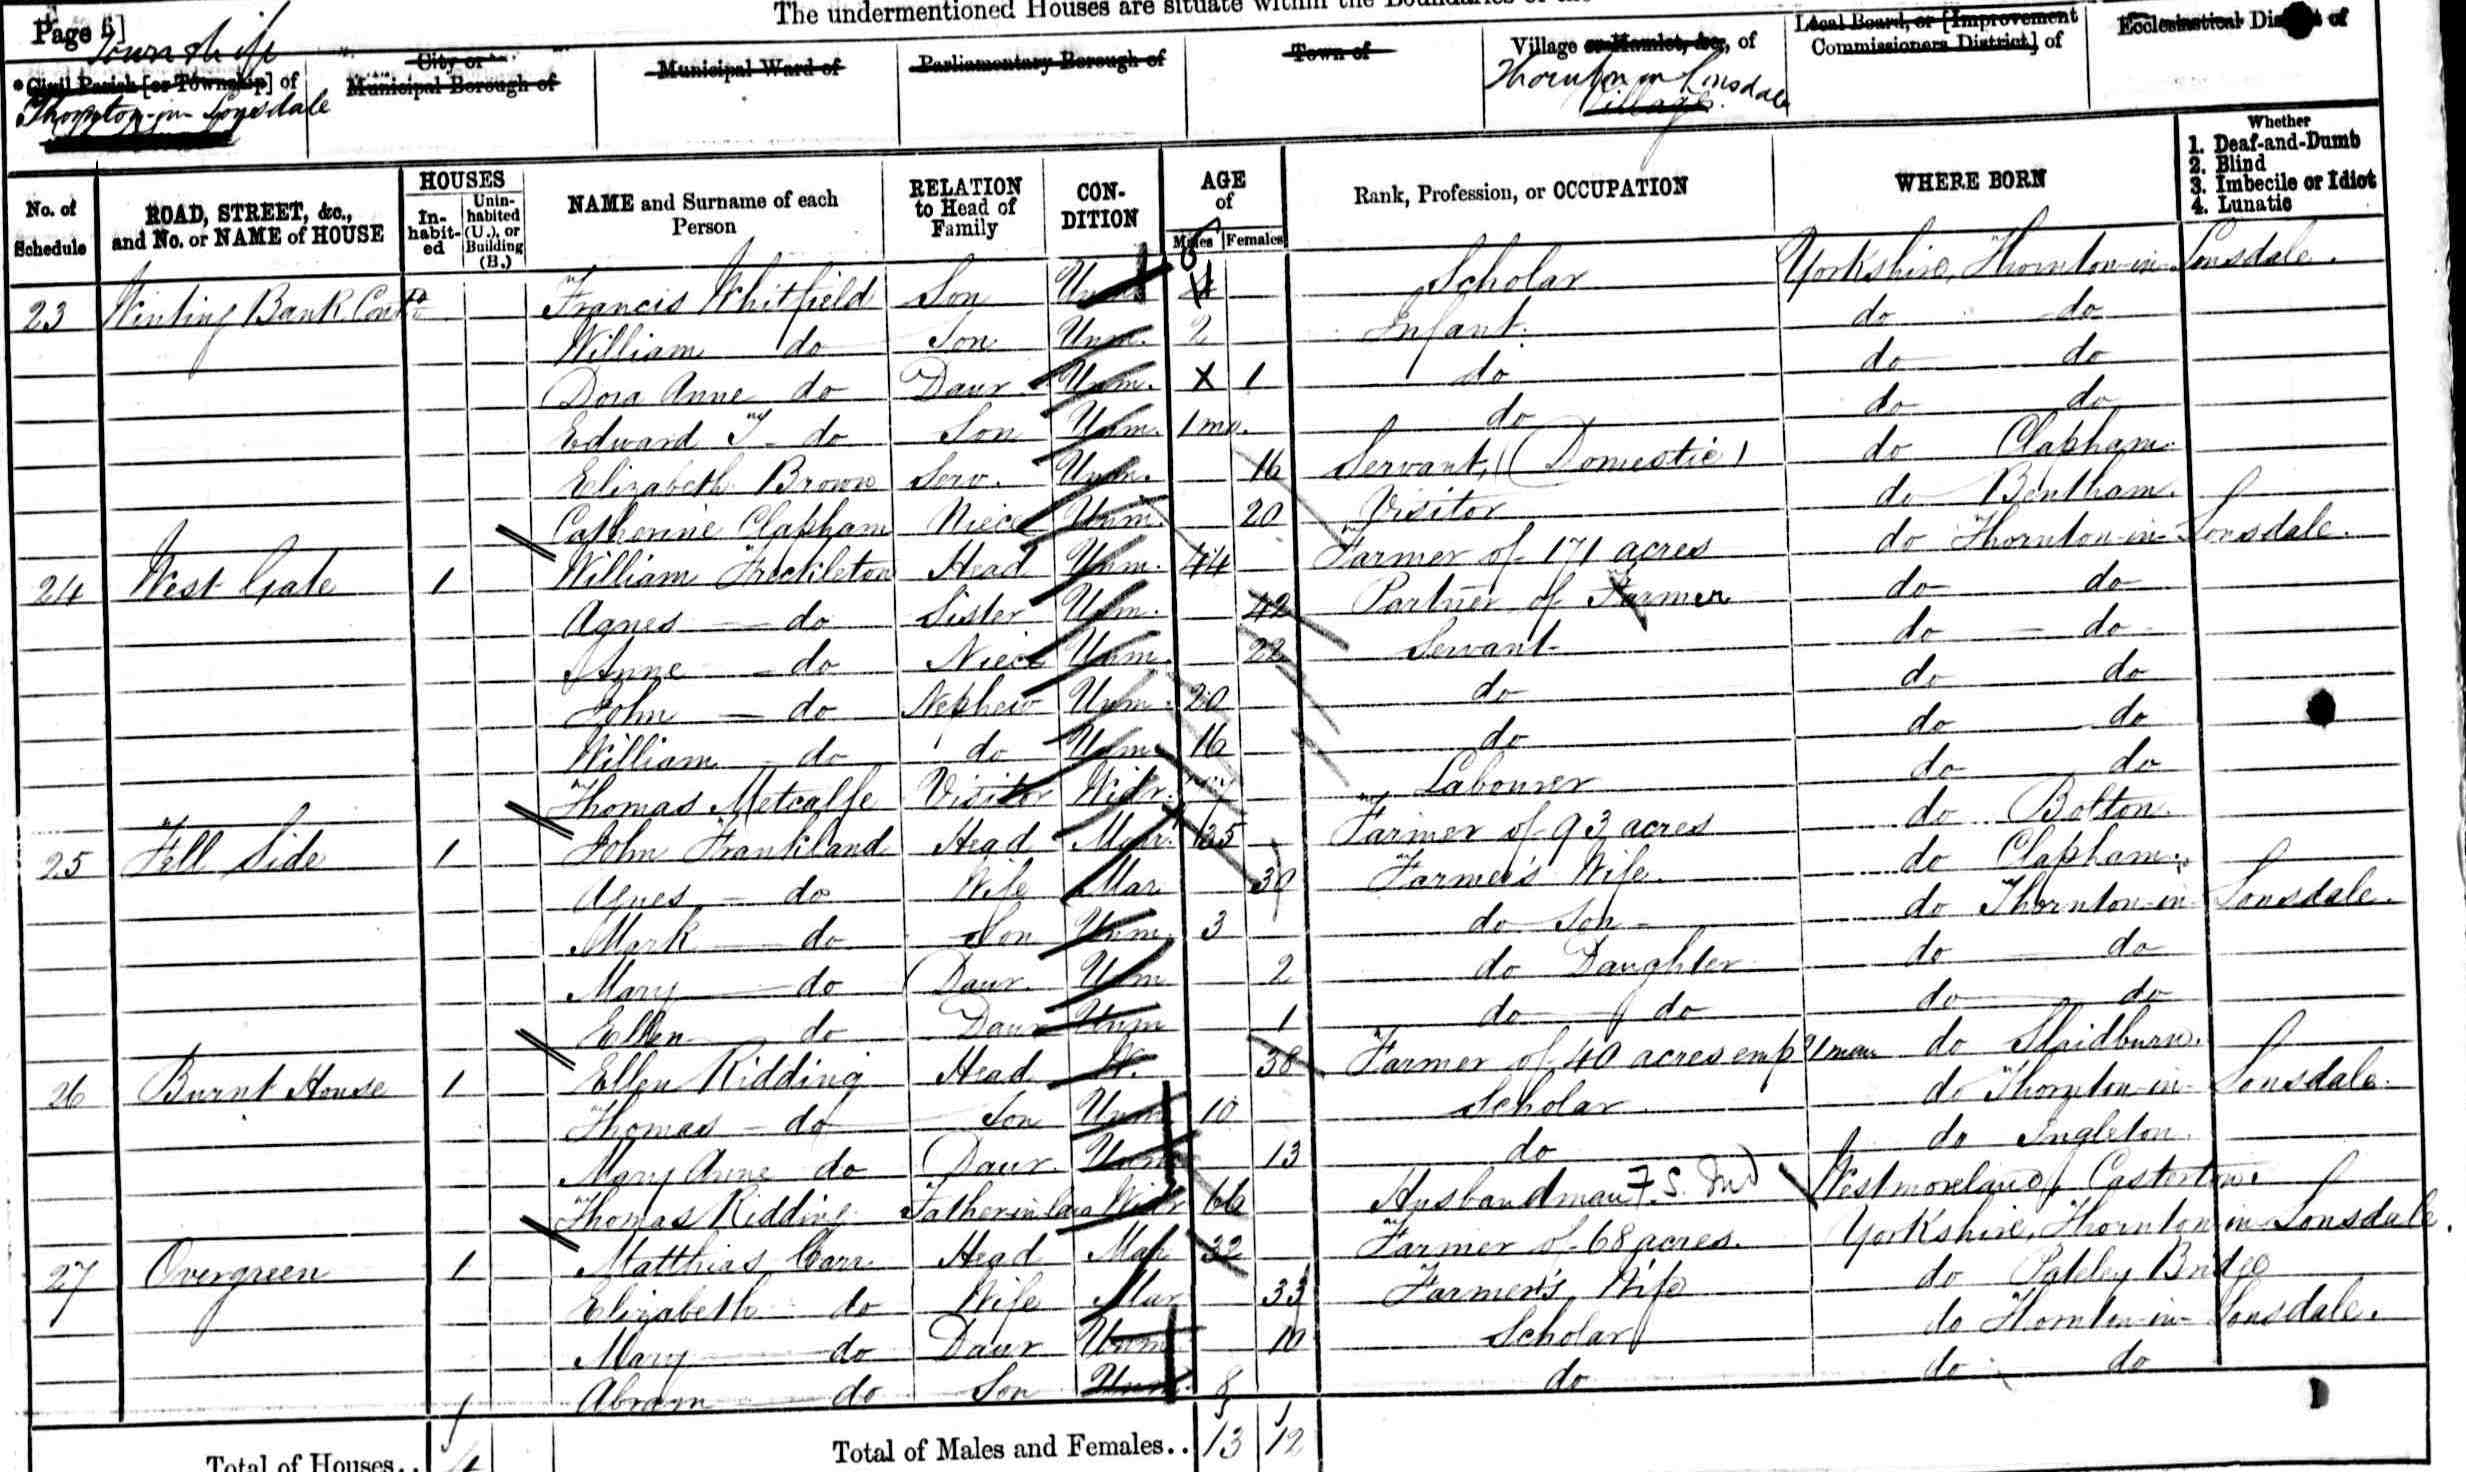 The undermentioned Houses are situate within the Boundaries of the
Page 5]
Township
Civil Parish [or Township] of
Thornton-in-Lonsdale
City or
Municipal Borough of
Municipal Ward of
Parliamentary Borough of
Town of
Village or Hamlet, &c., of
Thornton in Lonsdale
Village
Local Board, or [Improvement
Commissioners District] of
Ecclesiastical District of
No. of
Schedule
ROAD, STREET, &c.,
and No. or NAME of HOUSE
HOUSES
In-
habit-
ed
Unin-
habited
(U.), or
Building
(B.)
NAME and Surname of each
Person
RELATION
to Head of
Family
CON-
DITION
AGE
of
Males Females
Rank, Profession, or OCCUPATION
WHERE BORN
Whether
1. Deaf-and-Dumb
2. Blind
3. Imbecile or Idiot
4. Lunatic
23 Bank Contd Francis Whitfield Son Unm. Scholar Yorkshire, Thornton-in-Lonsdale.
William do Son Unm. 2 Infant. do do
Dora Anne do Daur. Unm. X 1 do do do
Edward T do Son Unm. 1 mo. do do do
Elizabeth Brown Serv. Unm. 16 Servant, (Domestic) do Clapham.
Catherine Clapham Niece Unm. 20 Visitor do Bentham.
24 West Gate 1 William Freckleton Head Unm. 44 Farmer of 171 acres do Thornton-in-Lonsdale.
Agnes do Sister Unm. 42 Partner of Farmer do do
Anne do Niece Unm. 22 Servant do do
John do Nephew Unm. 20 do do do
William do do Unm. 16 do do do
Thomas Metcalfe Visitor Widr. Labourer do do
25 Fell Side 1 John Frankland Head Mar. 35 Farmer of 93 acres do Bolton.
Agnes do Wife Mar 39 Farmer's Wife. do Clapham.
Mark do Son Unm. 3 do Son do Thornton-in-Lonsdale.
Mary do Daur. Unm 2 do Daughter do do
Ellen do Daur Unm 1 do do do do
26 Burnt House 1 Ellen Ridding Head W. 38 Farmer of 40 acres emp 1 man do Slaidburn.
Thomas do Son Unm 10 Scholar do Thornton-in-Lonsdale.
Mary Anne do Daur. Unm 13 do do Ingleton.
Thomas Ridding Father in law Widr 66 Husbandman F.S. Westmoreland, Casterton.
27 Overgreen 1 Matthias Carr Head Mar 32 Farmer of 68 acres. Yorkshire, Thornton-in-Lonsdale.
Elizabeth do Wife Mar 33 Farmer's Wife do Pateley Bridge
Mary do Daur Unm 10 Scholar do Thornton-in-Lonsdale.
Abram do Son Unm. 8 do do do
Total of Houses.. 4
Total of Males and Females.. 13 12